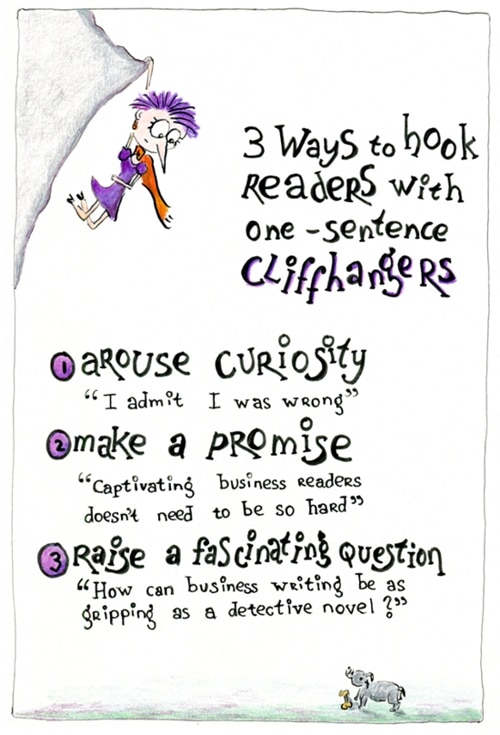 3 Ways to hook
Readers with
one-sentence
Cliffhangers
1 arouse curiosity
"I admit I was wrong"
2 make a promise
"Captivating business readers
doesn't need to be so hard"
3 Raise a fascinating question
"How can business writing be as
gripping as a detective novel?"